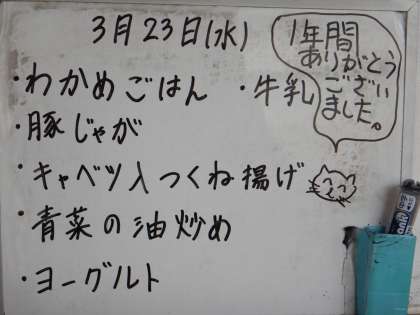 3月23日(水)
・わかめごはん ・牛乳
・豚じゃが
・キャベツ入つくね揚げ
・青菜の油炒め
・ヨーグルト
1年間
ありがとう
ござい
ました。